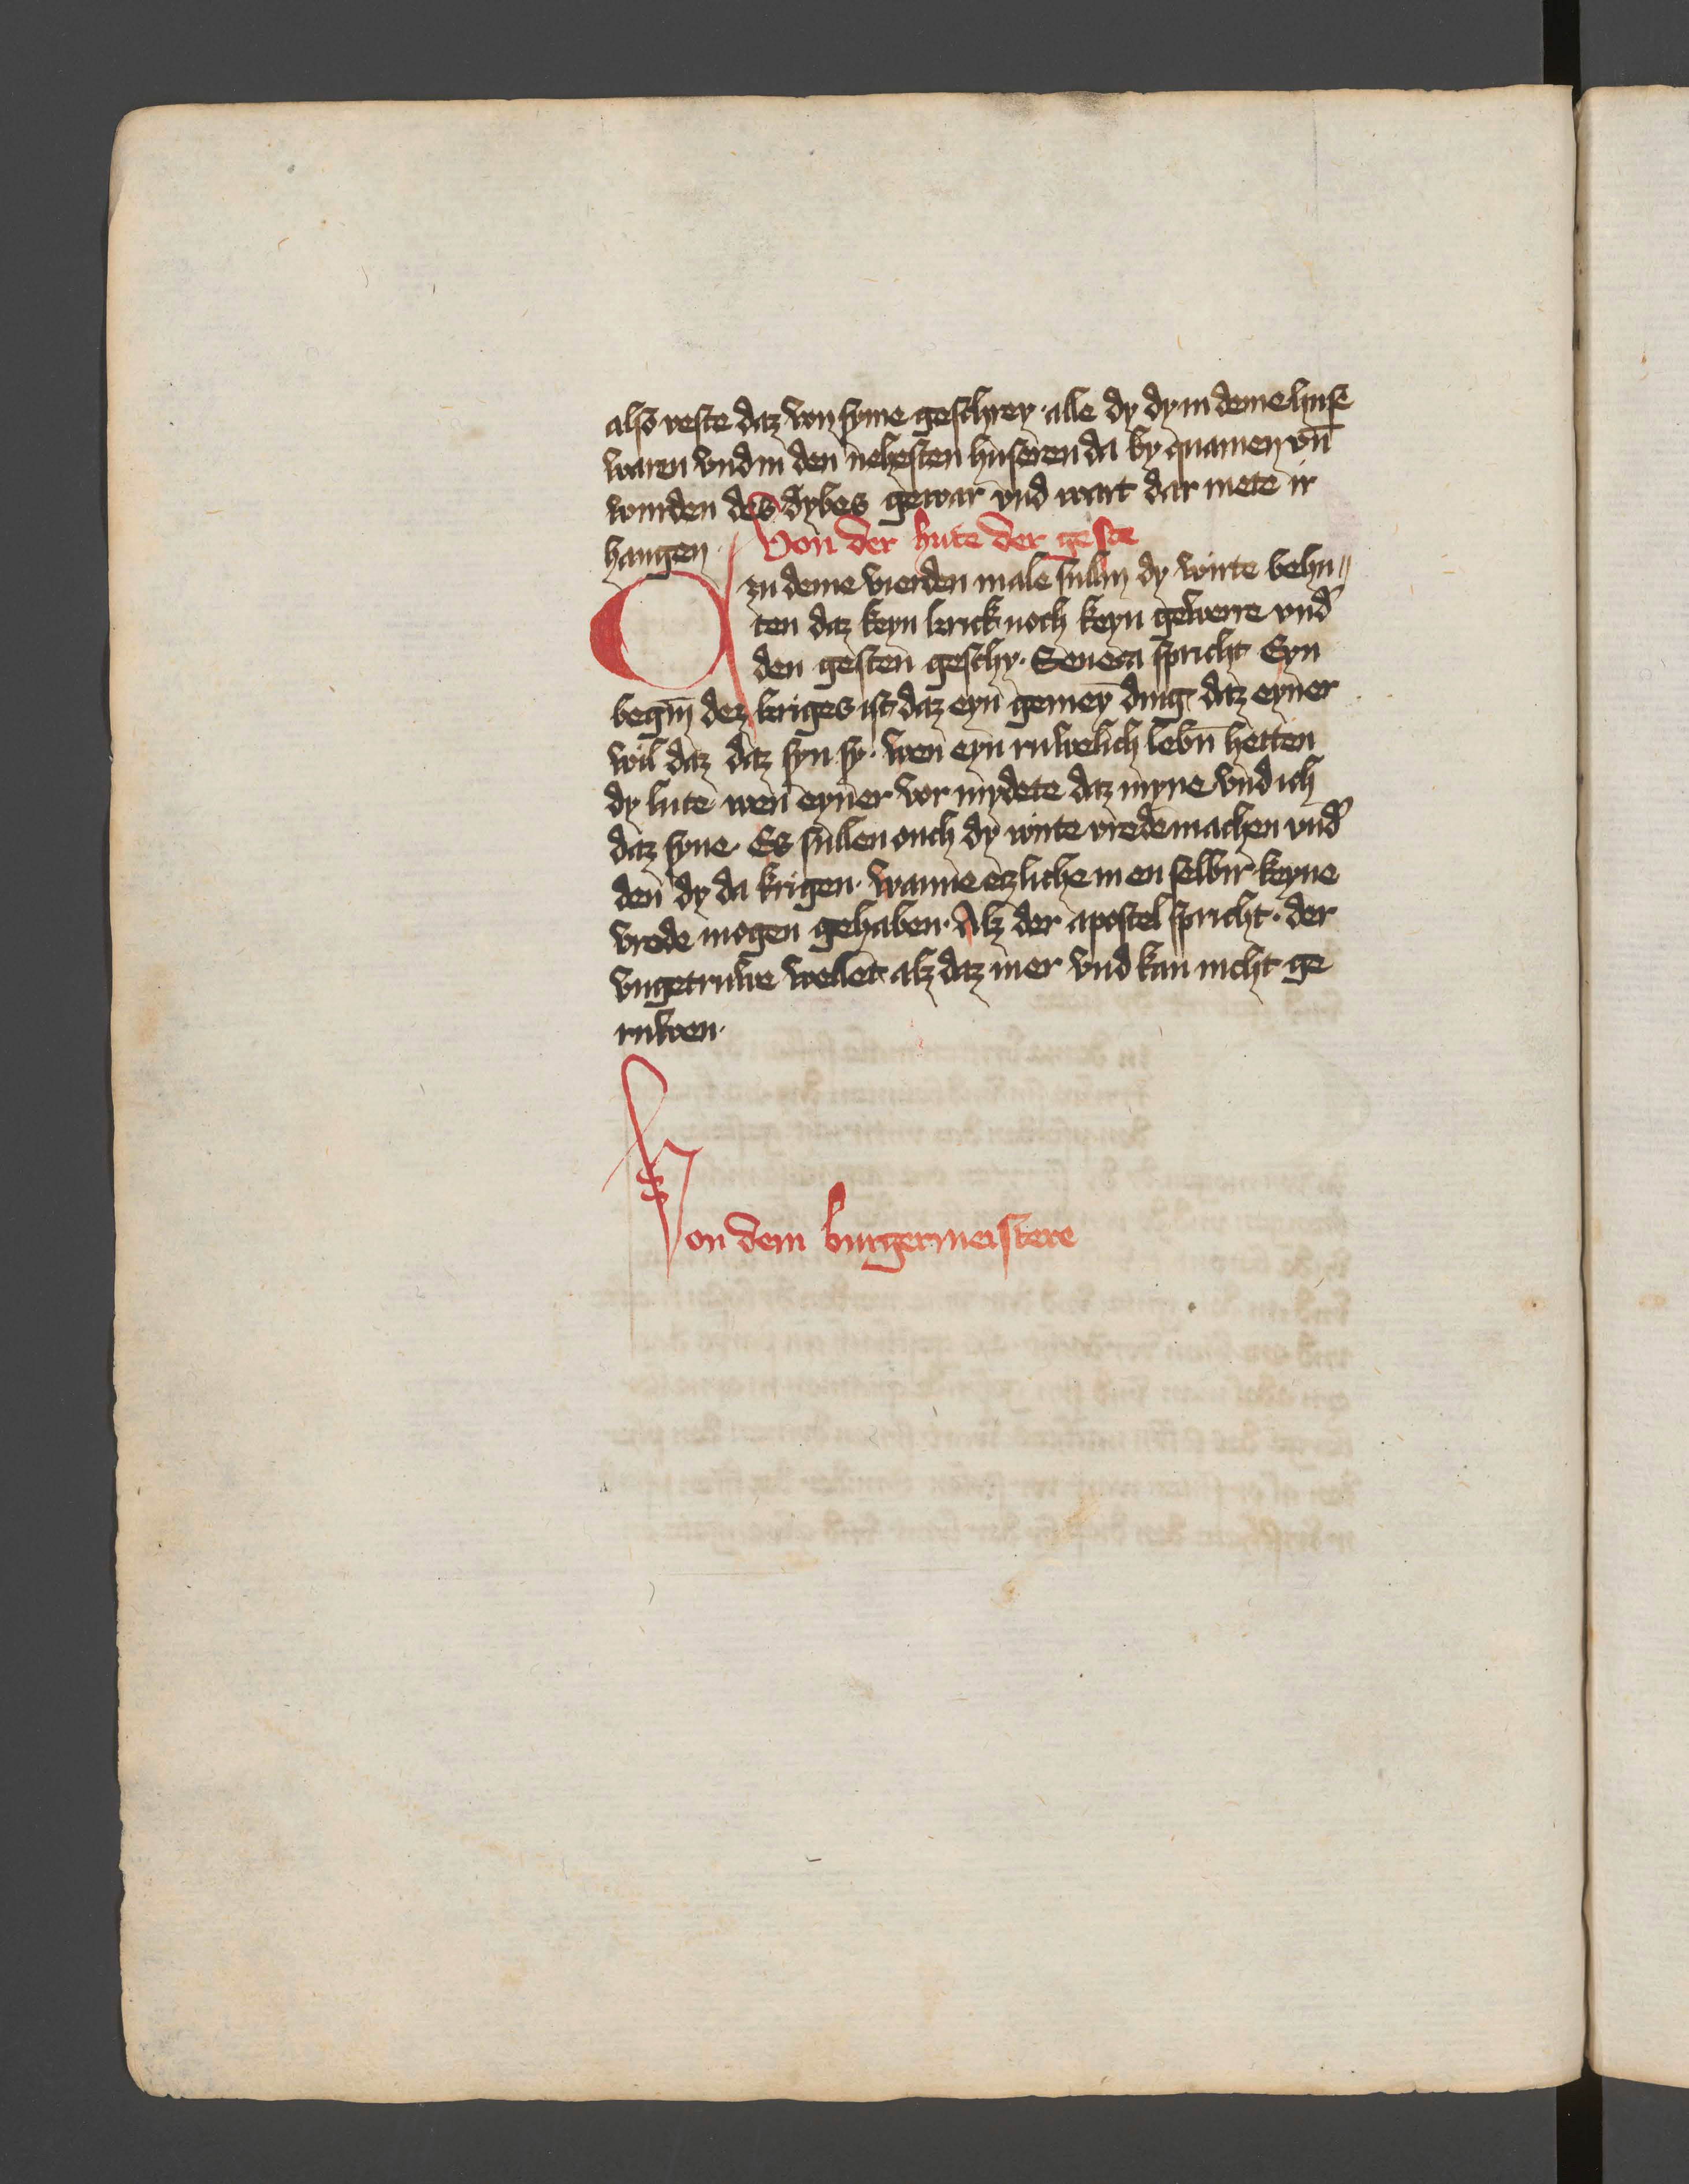 also veste daz von syme geschrey · alle dy dy in deme huse
waren vnd in den nehesten huseren da by quamen vn̄
wurden des dybes gewar vnd wart dar mete ir
hangen · Von der hute der geste
zu deme vierden male sullin dy wirte behu〃
ten daz keyn krick noch keyn gewerre vnd̓
den gesten geschy · Seneca spricht Eyn
begin̄ dez kriges ist daz eyn gemeȳ ding daz eyner
wil daz daz syn sy · wen eyn ruwelich lebn̄ hetten
dy lute wen eyner vor mydete daz myne vnd ich
daz syne · Es sullen ouch dy wirte vrede machen vnd̓
den dy da krigen · wanne etzliche in en selbir keyne
vrede mogen gehaben · Alz der apostel spricht · der
vngetruwe wellet alz daz mer vnd kan nicht ge
ruwen ·
Von dem burgermeistere